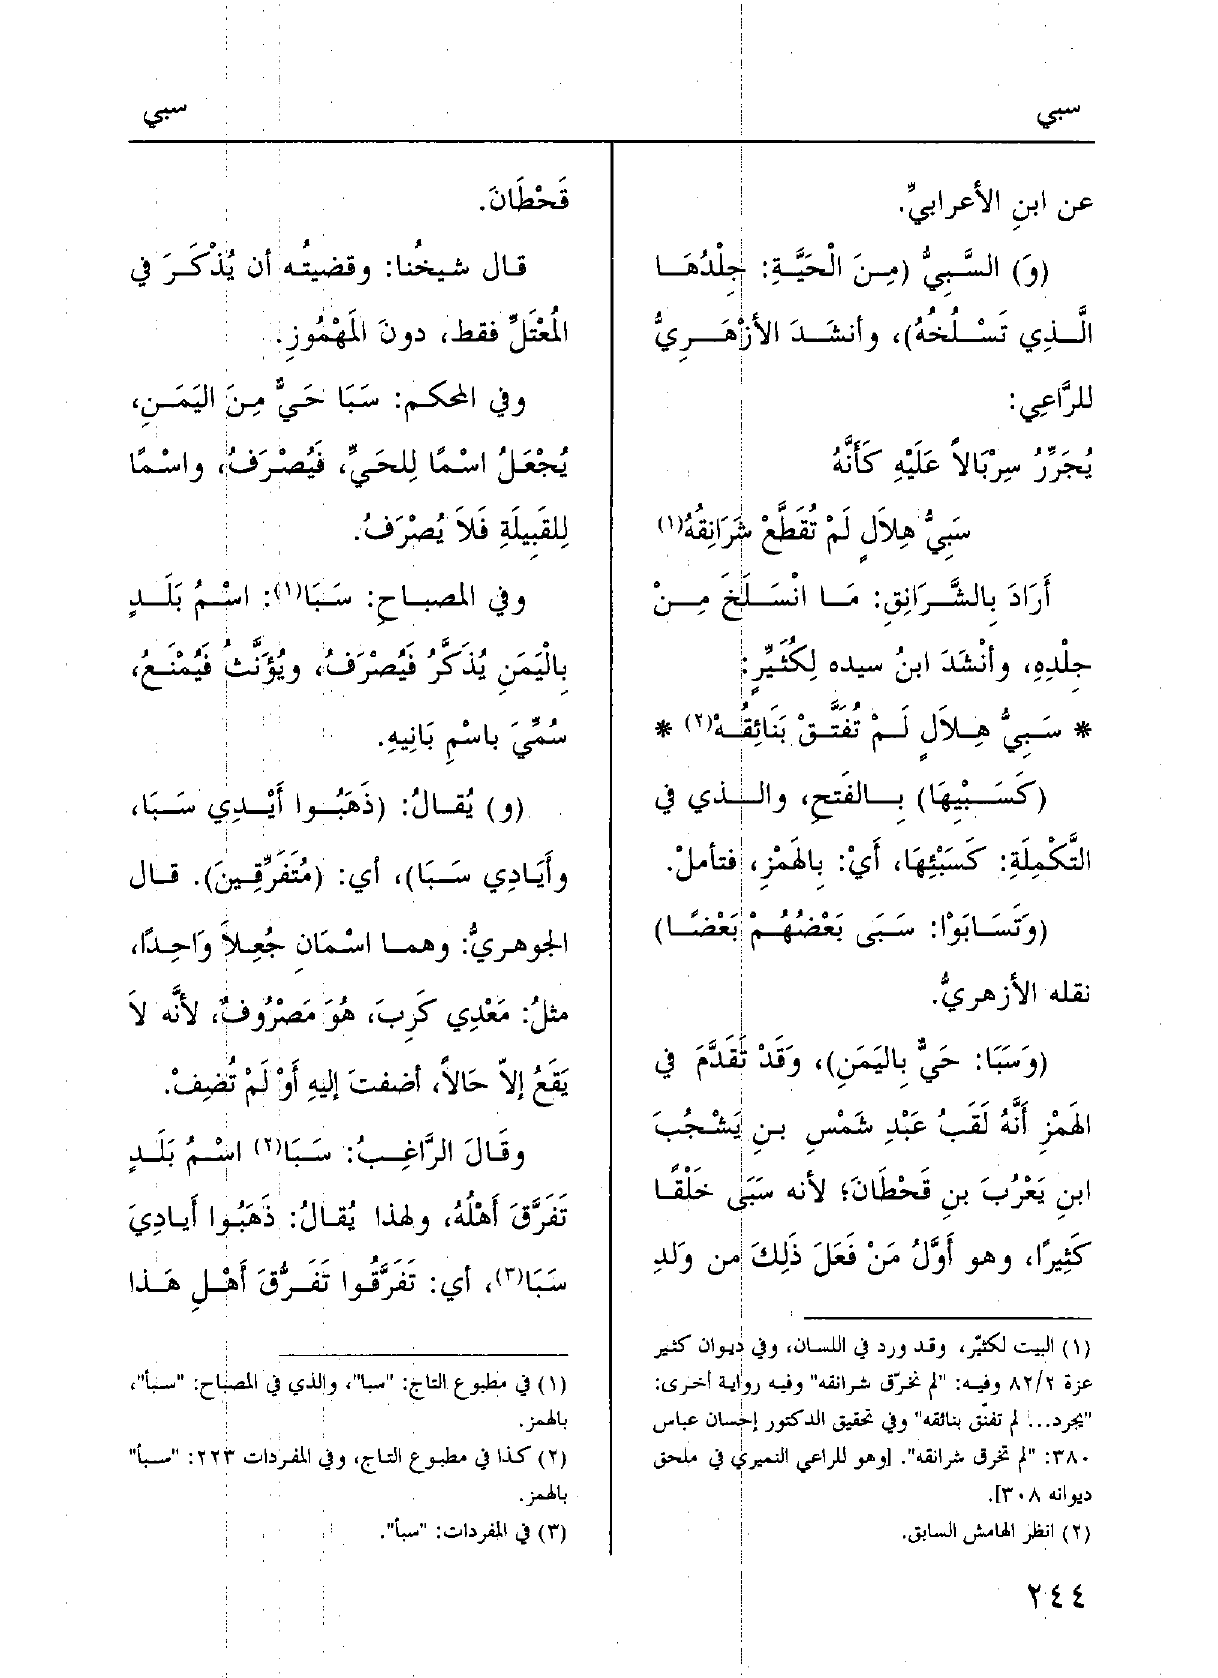 سبي
سبي
عن ابنِ الأعرابيِّ.
(وَ) السَّبِيُّ (مِنَ الْحَيَّةِ: جِلْدُهَا
الَّذِي تَسْلُخُهُ)، وأنشَدَ الأَزْهَرِيُّ
للرَّاعِي:
يُجَرِّرُ سِرْبَالاً عَلَيْهِ كَأَنَّهُ
سَبِيُّ هِلاَلٍ لَمْ تُقَطَّعْ شَرَانِقُهُ(١)
أَرَادَ بِالشَّرَانِقِ: مَا انْسَلَخَ مِنْ
جِلْدِهِ، وأنْشَدَ ابنُ سيده لِكُثَيِّرٍ:
* سَبِيُّ هِلاَلٍ لَمْ تُفَتَّقْ بَنَائِقُهْ(٢) *
(كَسَبْيِهَا) بِالفَتحِ، والذي في
التَّكْمِلَةِ: كَسَبْئِهَا، أَيْ: بِالهَمْزِ، فتأملْ.
(وَتَسَابَوْا: سَبَى بَعْضُهُمْ بَعْضًا)
نقله الأزهريُّ.
(وَسَبَا: حَيٌّ بِاليَمَنِ)، وَقَدْ تَقَدَّمَ في
الهَمْزِ أَنَّهُ لَقَبُ عَبْدِ شَمْسِ بنِ يَشْجُبَ
ابنِ يَعْرُبَ بنِ قَحْطَانَ؛ لأنه سَبَى خَلْقًا
كَثِيرًا، وهو أَوَّلُ مَنْ فَعَلَ ذَلِكَ من وَلَدِ
(١) البيت لكثيّر، وقد ورد في اللسان، وفي ديوان كثير
عزة ٨٢/٢ وفيه: "لم تخرّق شرانقه" وفيه رواية أخرى:
"يجرد... لم تفتّق بنائقه" وفي تحقيق الدكتور إحسان عباس
٣٨٠: "لم تخرق شرانقه". [وهو للراعي النميري في ملحق
ديوانه ٣٠٨].
(٢) انظر الهامش السابق.
قَحْطَانَ.
قال شيخُنا: وقضيتُه أن يُذْكَرَ في
المُعْتَلِّ فقط، دونَ المَهْمُوزِ.
وفي المحكم: سَبَا حَيٌّ مِنَ اليَمَنِ،
يُجْعَلُ اسْمًا لِلحَيِّ، فَيُصْرَفُ، واسْمًا
لِلقَبِيلَةِ فَلاَ يُصْرَفُ.
وفي المصباحِ: سَبَا(١): اسْمُ بَلَدٍ
بِالْيَمَنِ يُذَكَّرُ فَيُصْرَفُ، ويُؤَنَّثُ فَيُمْنَعُ،
سُمِّيَ باسْمِ بَانِيهِ.
(و) يُقالُ: (ذَهَبُوا أَيْدِي سَبَا،
وأَيَادِي سَبَا)، أي: (مُتَفَرِّقِينَ). قال
الجوهريُّ: وهما اسْمَانِ جُعِلاَ وَاحِدًا،
مثلُ: مَعْدِي كَرِبَ، هُوَ مَصْرُوفٌ، لأنَّه لاَ
يَقَعُ إلاّ حَالاً، أضفتَ إليهِ أَوْ لَمْ تُضِفْ.
وقَالَ الرَّاغِبُ: سَبَا(٢) اسْمُ بَلَدٍ
تَفَرَّقَ أَهْلُهُ، ولهذا يُقالُ: ذَهَبُوا أيادِيَ
سَبَا(٣)، أي: تَفَرَّقُوا تَفَرُّقَ أَهْلِ هَذا
(١) في مطبوع التاج: "سبا"، والذي في المصباح: "سبأ"،
بالهمز.
(٢) كذا في مطبوع التاج، وفي المفردات ٢٢٣: "سبأ"
بالهمز.
(٣) في المفردات: "سبأ".
٢٤٤